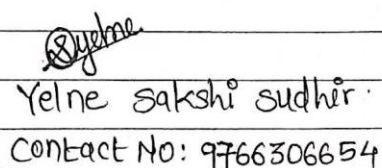 Syelne
Yelne sakshi sudhir.
Contact No: 9766306654